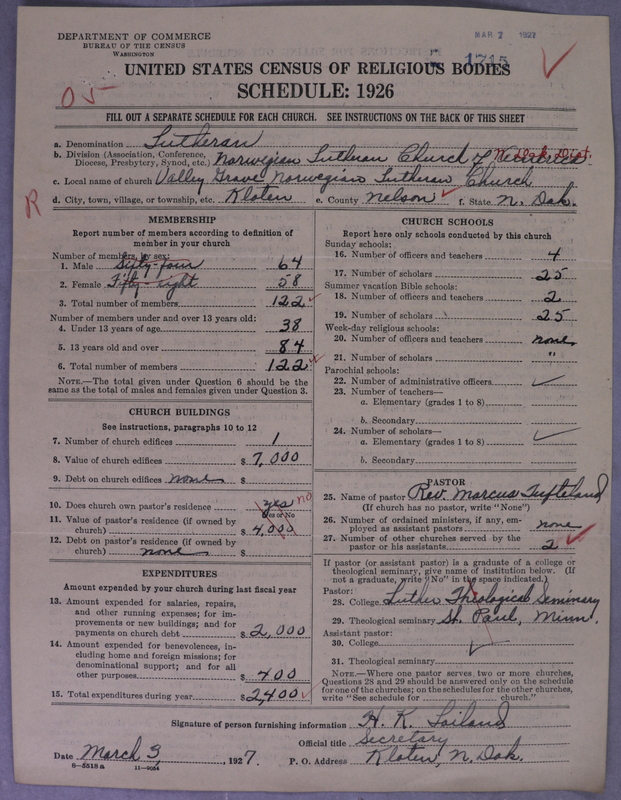 DEPARTMENT OF COMMERCE
BUREAU OF THE CENSUS
WASHINGTON
MAR 7 1927
1715
UNITED STATES CENSUS OF RELIGIOUS BODIES
SCHEDULE: 1926
05-
FILL OUT A SEPARATE SCHEDULE FOR EACH CHURCH. SEE INSTRUCTIONS ON THE BACK OF THIS SHEET
a. Denomination Lutheran
b. Division (Association, Conference, Diocese, Presbytery, Synod, etc.) Norwegian Lutheran Church of N. Dak. Dist.
c. Local name of church Valley Grove Norwegian Lutheran Church
d. City, town, village, or township, etc. Kloten e. County Nelson f. State N. Dak.
R
MEMBERSHIP
Report number of members according to definition of member in your church
Number of members, by sex:
1. Male Sixty-four 64
2. Female Fifty-eight 58
3. Total number of members 122
Number of members under and over 13 years old:
4. Under 13 years of age 38
5. 13 years old and over 84
6. Total number of members 122
NOTE.—The total given under Question 6 should be the same as the total of males and females given under Question 3.
CHURCH BUILDINGS
See instructions, paragraphs 10 to 12
7. Number of church edifices 1
8. Value of church edifices $ 7,000
9. Debt on church edifices none $
10. Does church own pastor's residence yes no
Yes or No
11. Value of pastor's residence (if owned by church) $ 4,000
12. Debt on pastor's residence (if owned by church) none $
EXPENDITURES
Amount expended by your church during last fiscal year
13. Amount expended for salaries, repairs, and other running expenses; for improvements or new buildings; and for payments on church debt $ 2,000
14. Amount expended for benevolences, including home and foreign missions; for denominational support; and for all other purposes $ 400
15. Total expenditures during year $ 2,400
CHURCH SCHOOLS
Report here only schools conducted by this church
Sunday schools:
16. Number of officers and teachers 4
17. Number of scholars 25
Summer vacation Bible schools:
18. Number of officers and teachers 2
19. Number of scholars 25
Week-day religious schools:
20. Number of officers and teachers none
21. Number of scholars "
Parochial schools:
22. Number of administrative officers
23. Number of teachers—
a. Elementary (grades 1 to 8)
b. Secondary
24. Number of scholars—
a. Elementary (grades 1 to 8)
b. Secondary
PASTOR
25. Name of pastor Rev. Marcus Tufteland
(If church has no pastor, write "None")
26. Number of ordained ministers, if any, employed as assistant pastors none
27. Number of other churches served by the pastor or his assistants 2
If pastor (or assistant pastor) is a graduate of a college or theological seminary, give name of institution below. (If not a graduate, write "No" in the space indicated.)
Pastor:
28. College Luther Theological Seminary
29. Theological seminary St. Paul, Minn.
Assistant pastor:
30. College
31. Theological seminary
NOTE.—Where one pastor serves two or more churches, Questions 28 and 29 should be answered only on the schedule for one of the churches; on the schedules for the other churches, write "See schedule for church."
Signature of person furnishing information H. K. Loiland
Official title Secretary
Date March 3, 1927. P. O. Address Kloten, N. Dak.
8-5518a 11-9054